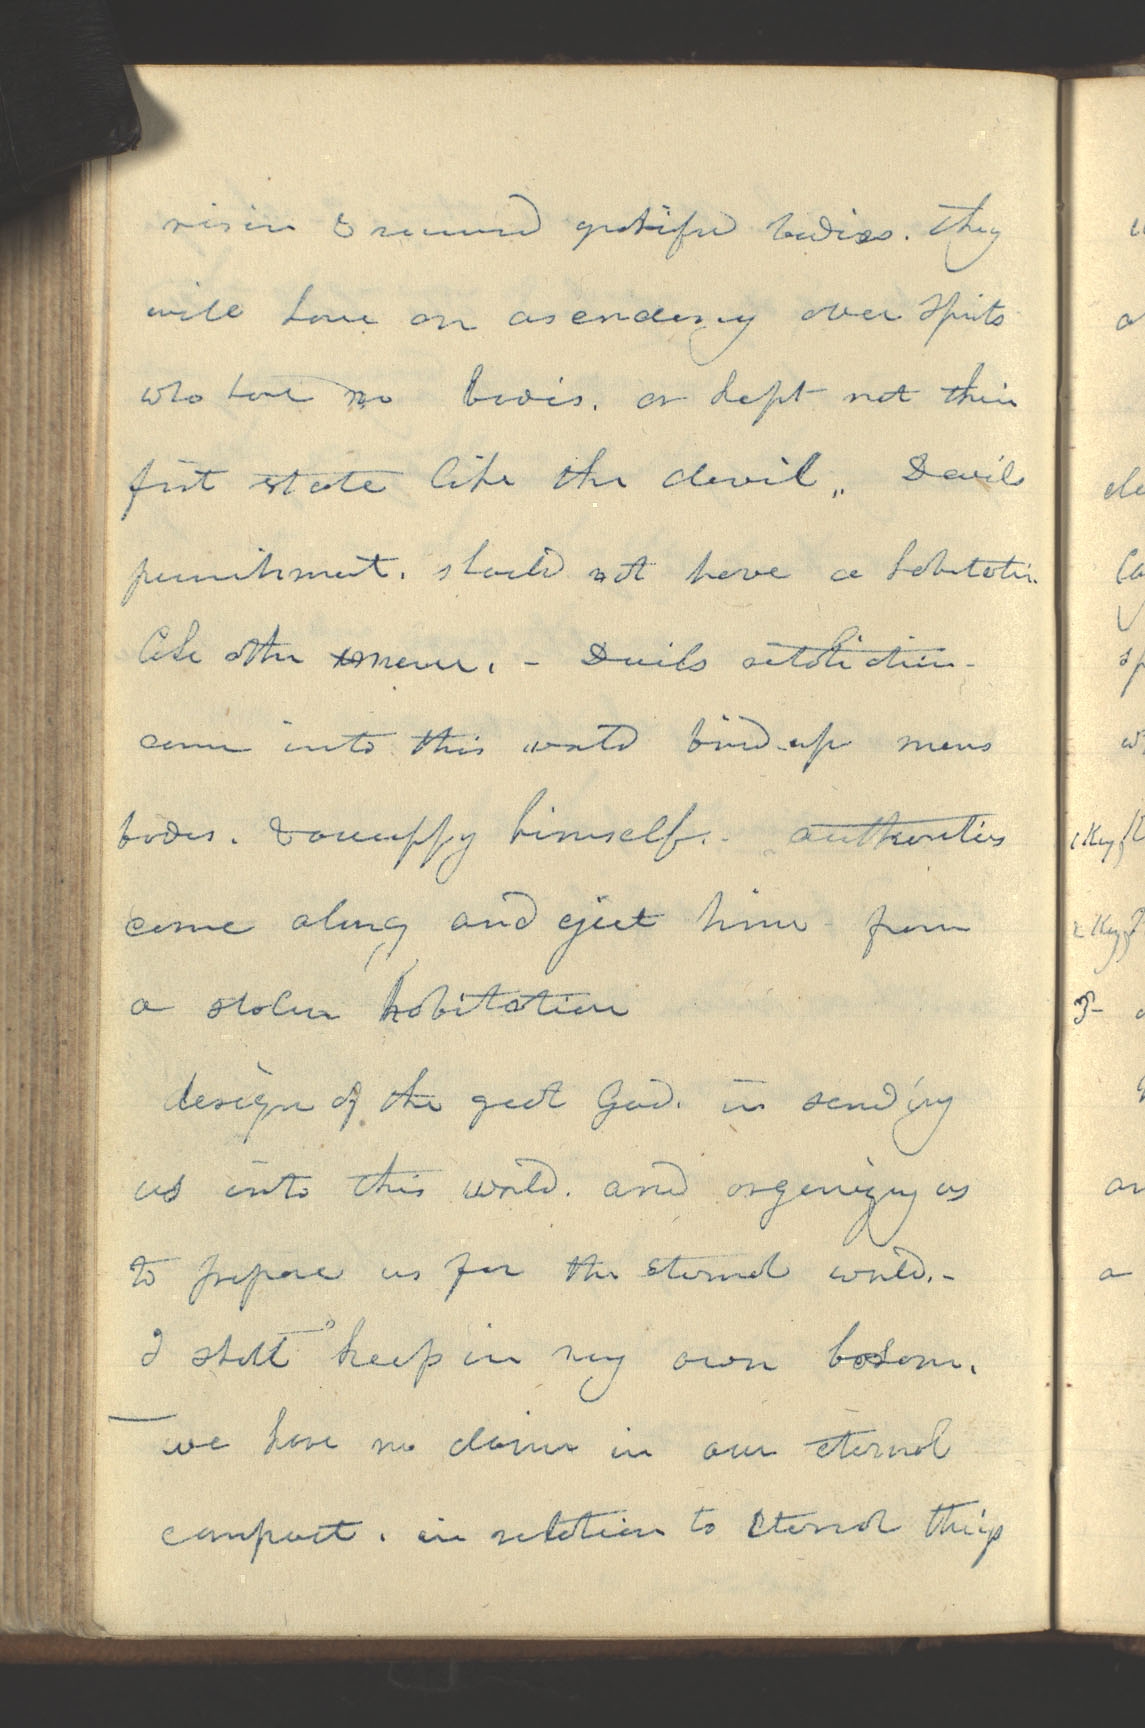 risin & received gratified bodies. they
will have an asendency over spirits
who have no bodies. or kept not their
first state like the devil,, Devils
punishment. should not have a habitatin
like other men. - Devils retaliation -
come into this world bind up mens
bodies. & occuppy himself. - authorities
come along and eject him from
a stolen habitation
design of the great God. in sending
us into this world. and organizing us
to prepare us for the Eternal world. -
I shall keep in my own bosom.
we have no claim in our eternal
compact. in relation to Eternal things